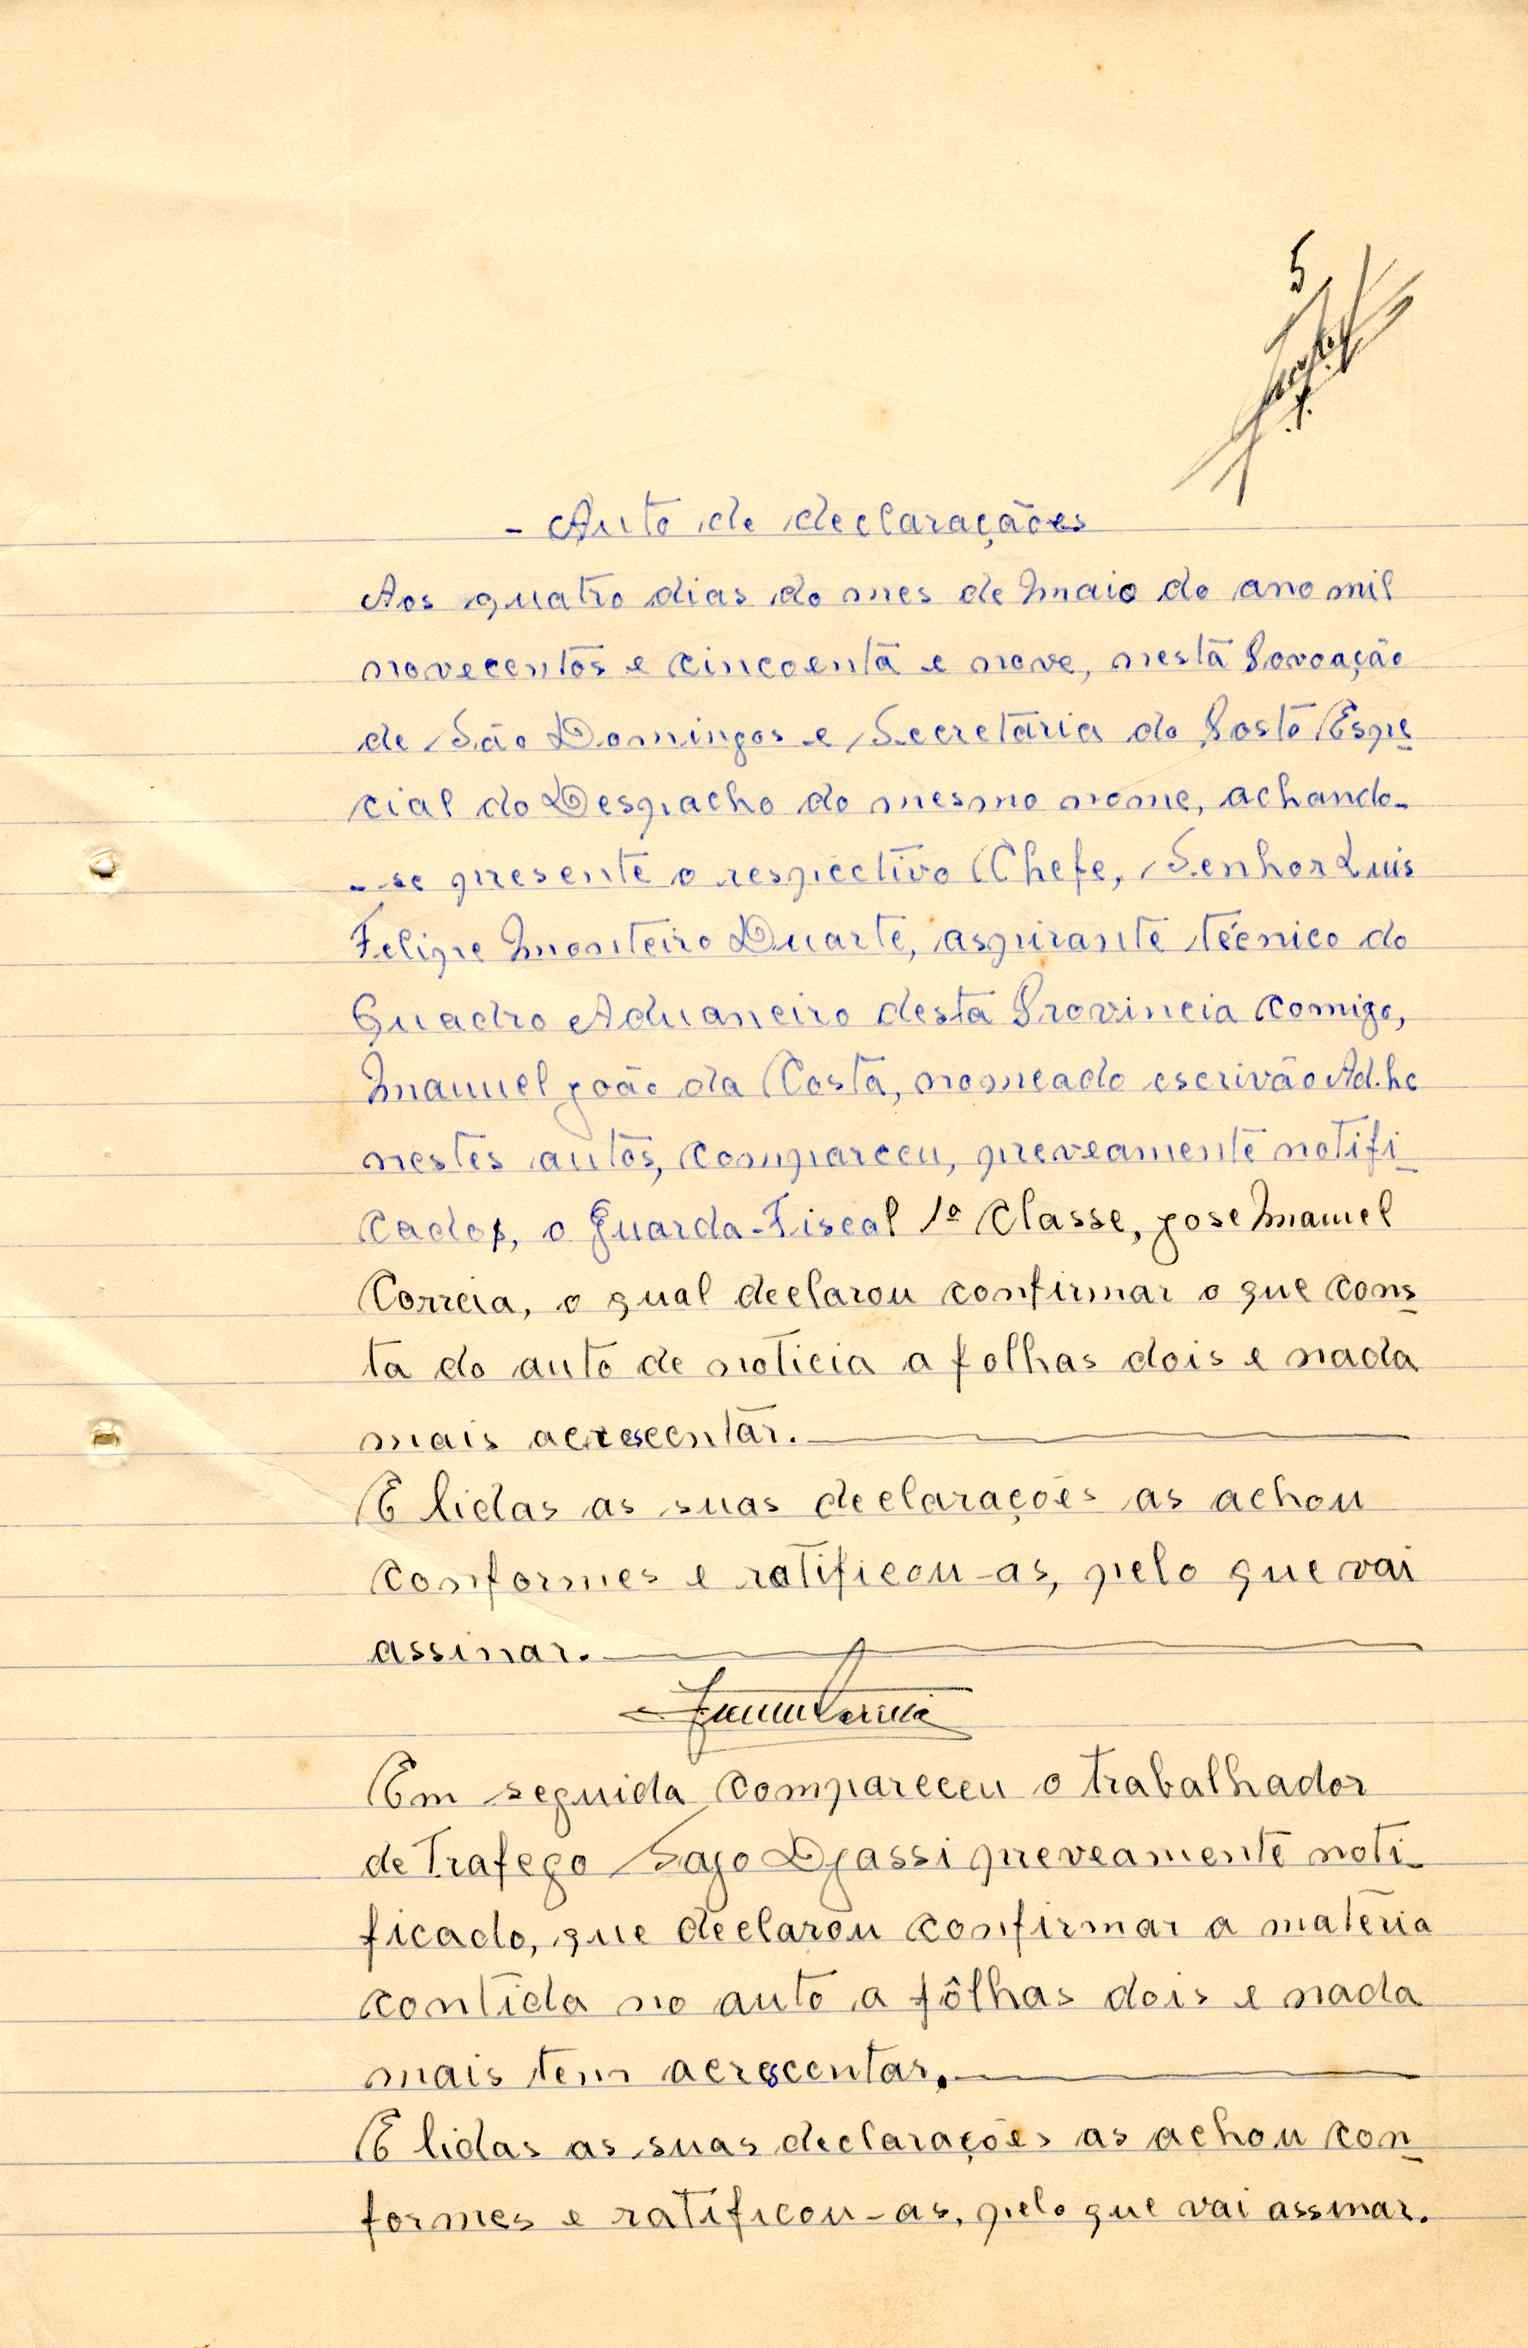 5
- Auto de declaraçães
Aos quatro dias do mes de Maio do ano mil
novecentos e cincoenta e nove, nesta Povoação
de São Domingos e Secretaria do Posto Espe-
cial do Despacho do mesmo nome, achando-
-se presente o respiectivo Chefe, Senhor Luis
Felipe Monteiro Duarte, aspirante técnico do
Quadro Aduaneiro desta Provincia comigo,
Manuel João da Costa, nomeado escrivão Ad.hc
nestes autos, compareceu, preveamente notifi-
cado, o Guarda-Fiscal 1ª Classe, Jose Manuel
Correia, o qual declarou confirmar o que cons-
ta do auto de noticia a folhas dois e nada
mais acrescentar.
E lidas as suas declarações as achou
conformes e ratificou-as, pelo que vai
assinar.
Em seguida compareceu o trabalhador
de Trafego Sajo Djassi preveamente noti-
ficado, que declarou confirmar a materia
contida no auto a fôlhas dois e nada
mais tem acrescentar.
E lidas as suas declarações as achou con-
formes e ratificou-as, pelo que vai assinar.